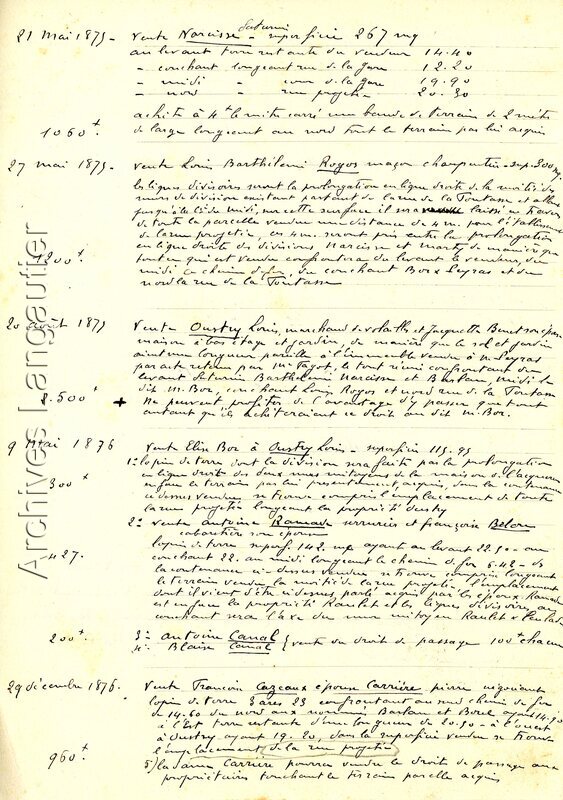 21 mai 1875 - Vente Narcisse Saturni - superficie 267 mq
au levant terre restante du vendeur 14.40
- couchant longeant rue de la Gare 12.20
- midi - cour de la Gare 19.90
- nord - rue projetée 20.30
achète à 4f le mètre carré une bande de terrain de 2 mèts
1060f. de large longeant au nord tout le terrain par lui acquis
27 mai 1875 - Vente Louis Barthélemi Rogos maçon charpentier - sup. 300 mq.
les lignes divisoires seront la prolongation en ligne droite de la moitié des
murs de division existant partant de la rue de la Fontasse et allant
jusqu'à du midi, sur cette surface il sera laissé en travers
de toute la parcelle vendue une distance de 4 m. pour l'établissement
de la rue projetée ces 4 m. seront pris entre la prolongation
en ligne droite des divisions Narcisse et Marty de manière que
1200f. tout ce qui est vendu confrontera du levant le vendeur, du
midi ce chemin de fer, du couchant Bor & Leyras et du
nord la rue de la Fontasse
20 août 1875 Vente Oustry Louis, marchand de volaille et Jacquette Benet son épouse
maison à bas étage et jardin, de manière que le sol et jardin
aient une longueur pareille à l'immeuble vendu à M. Leyras
par acte retenu par Me Fagot, le tout réuni confrontant du
levant Saturnin Barthélemi Narcisse et Burlan, midi le
8.500f dit M. Bor, couchant Louis Rogos et nord rue de la Fontasse
+ Ne peuvent profiter de l'avantage du passage que tout
autant qu'ils achèteraient ce droit au dit M. Bor.
9 Mai 1876 Vente Elie Bor à Oustry Louis - superficie 115.95
1° lopin de terre dont la division sera faite par la prolongation
en ligne droite des deux murs mitoyens de la maison de l'acquéreur
300f en face le terrain par lui présentement acquis, dans la contenance
ci dessus vendue se trouve compris l'emplacement de toute
la rue projetée longeant la propriété Oustry
2° Vente Antoine Ramade serrurier et Françoise Belou
cabaretière son épouse
lopin de terre superf. 142 mq ayant au levant 22.50 - au
427. couchant 22. au midi longeant le chemin de fer 6.42 - dans
la contenance ci-dessus vendue se trouve compris longeant
le terrain vendu la moitié de la rue projetée l'emplacement
dont il vient d'être ci dessus parlé acquis par les époux Ramade
est en face la propriété Raulet et les lignes divisoires au
couchant sera l'axe du mur mitoyen Raulet & Peulade
200f. 3° Antoine Canal
4° Blaise Canal } vente du droit de passage 100f chacun
29 décembre 1876. Vente François Cazeaux épouse Carrière pierre négociant
lopin de terre 3 ares 23 confrontant au sud chemin de fer
de 14.60 du nord aux nommés Burlan et Borel ayant 14.90
à l'Est terre restante d'une longueur de 20.50 - à l'ouest
à Oustry ayant 19.20, dans la superficie vendue se trouve
l'emplacement de la rue projetée
960f 5) la dame Carrière pourra vendre le droit de passage aux
propriétaires touchant le terrain par elle acquis
Archives Langautier